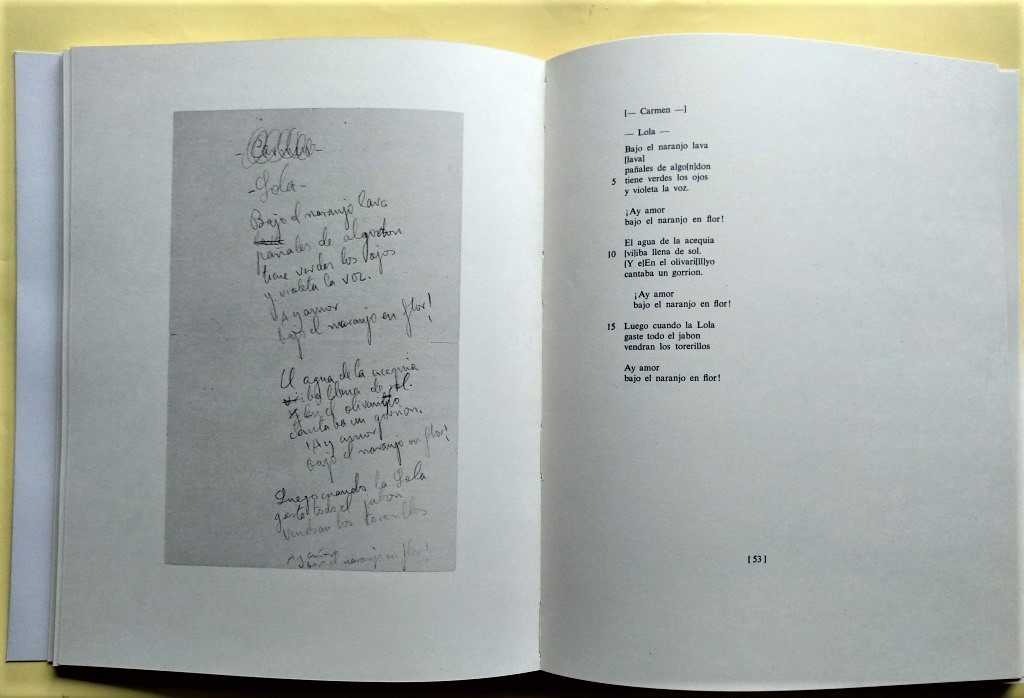 - Carmen -
- Lola -
Bajo el naranjo lava
lava
pañales de algodon
tiene verdes los ojos
y violeta la voz.
¡Ay amor
bajo el naranjo en flor!
El agua de la acequia
iba llena de sol.
En el olivariyo
cantaba un gorrion.
¡Ay amor
bajo el naranjo en flor!
Luego cuando la Lola
gaste todo el jabon
vendran los torerillos
Ay amor
bajo el naranjo en flor!
[— Carmen —]
— Lola —
Bajo el naranjo lava
[lava]
pañales de algo[n]don
5 tiene verdes los ojos
y violeta la voz.
¡Ay amor
bajo el naranjo en flor!
El agua de la acequia
10 [vi]iba llena de sol.
[Y e]En el olivari[ll]yo
cantaba un gorrion.
¡Ay amor
bajo el naranjo en flor!
15 Luego cuando la Lola
gaste todo el jabon
vendran los torerillos
Ay amor
bajo el naranjo en flor!
[53]